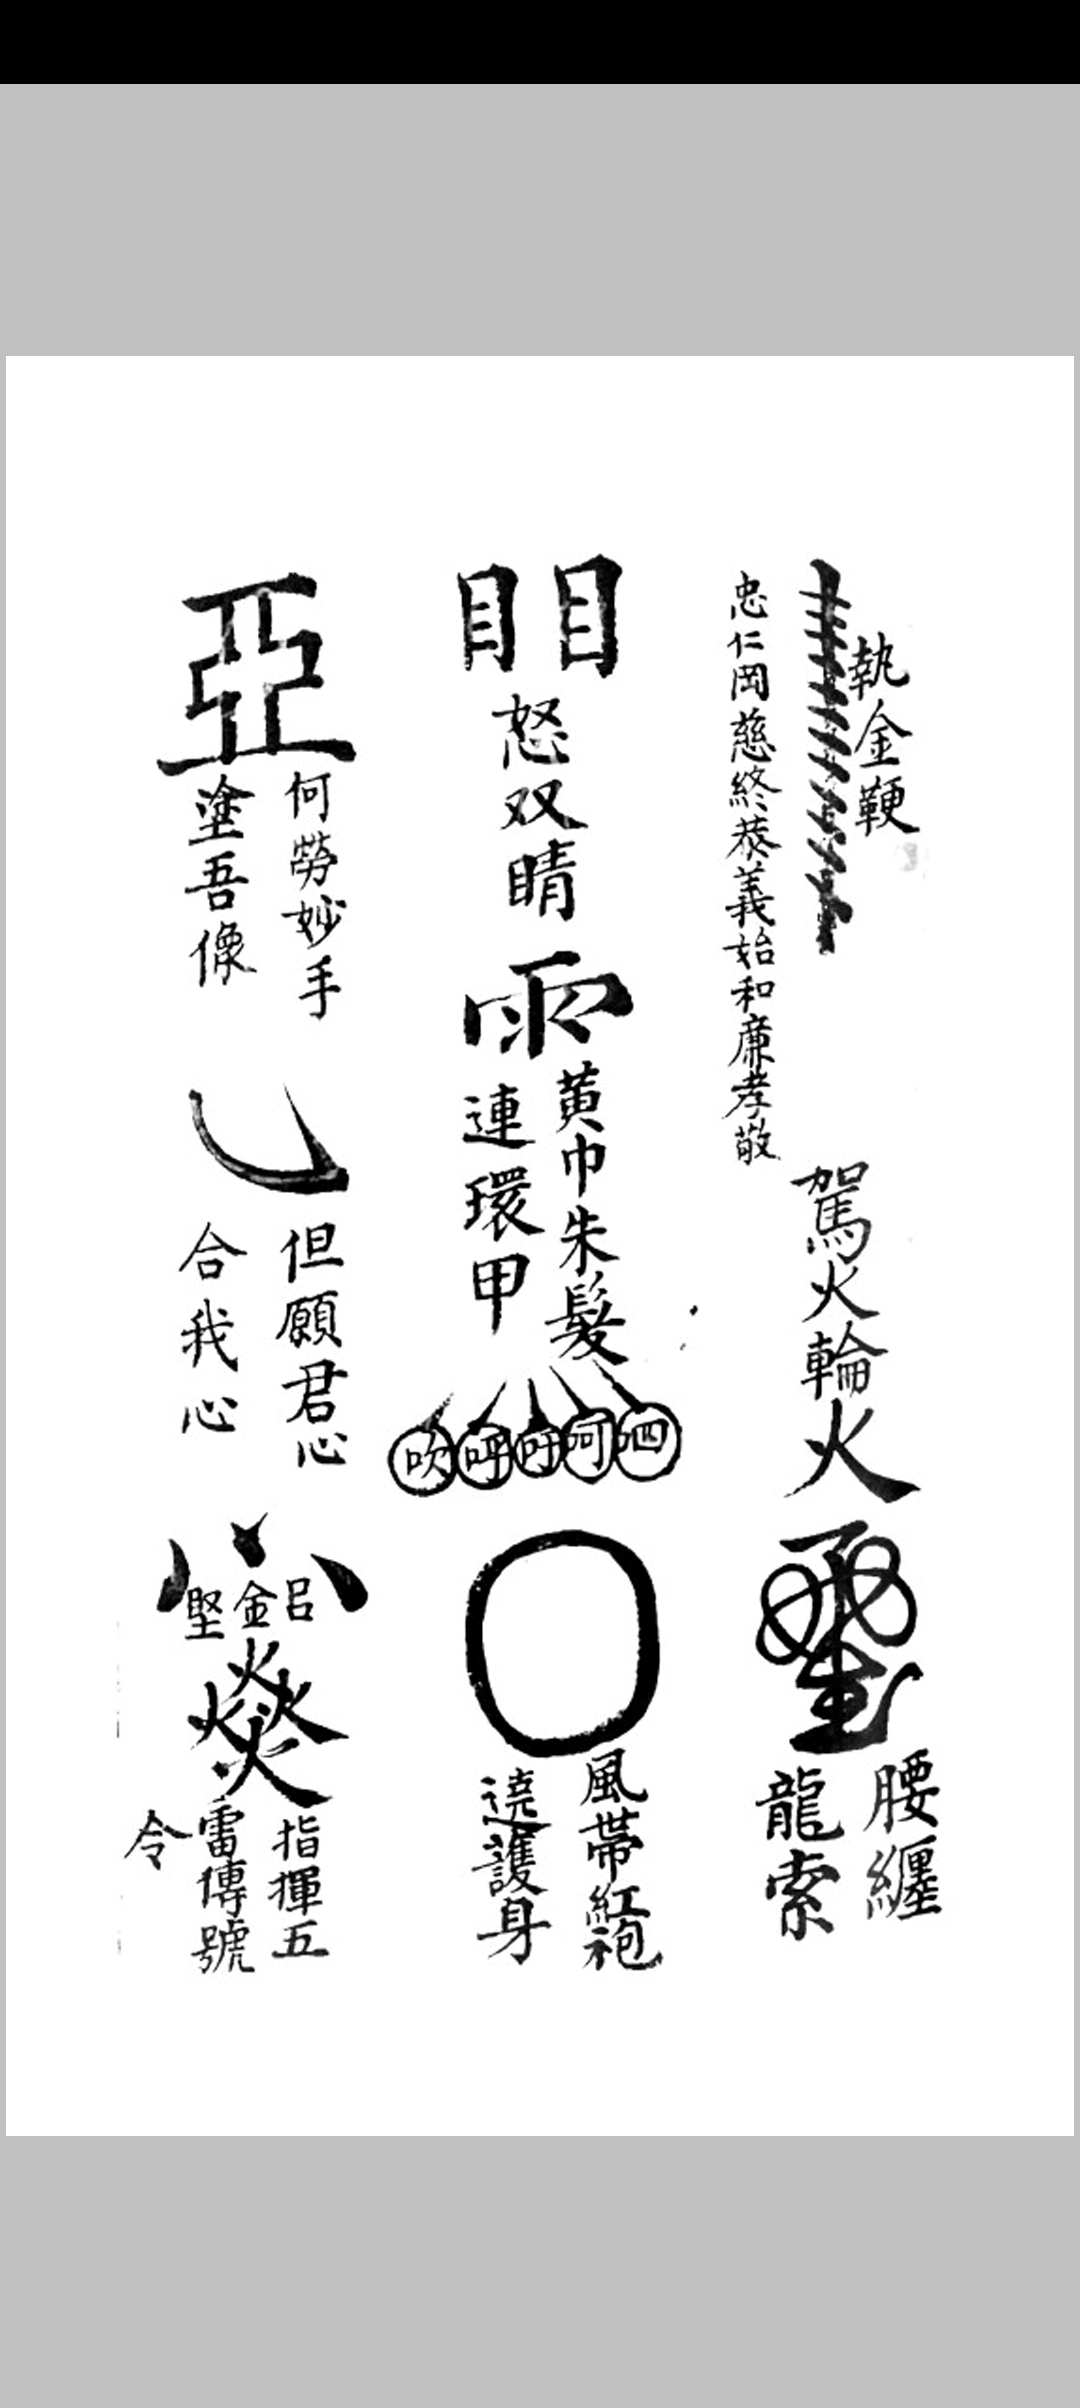 執金鞭
忠仁岡慈終恭義始和廉孝敬
駕火輪
火
腰纏
龍索
䀠
怒双睛
雨
黄巾朱髮
連環甲
呬呵吁呼吹
風帶紅袍
遶護身
亞
何勞妙手
塗吾像
但願君心
合我心
呂金堅
指揮五
雷傳號
令